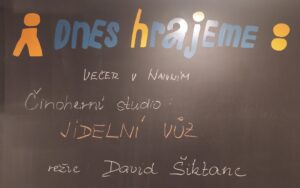 DNES hrajeme:
VEČER V NAVNÍM
Činoherní studio:
JÍDELNÍ VŮZ
režie David Šiktanc